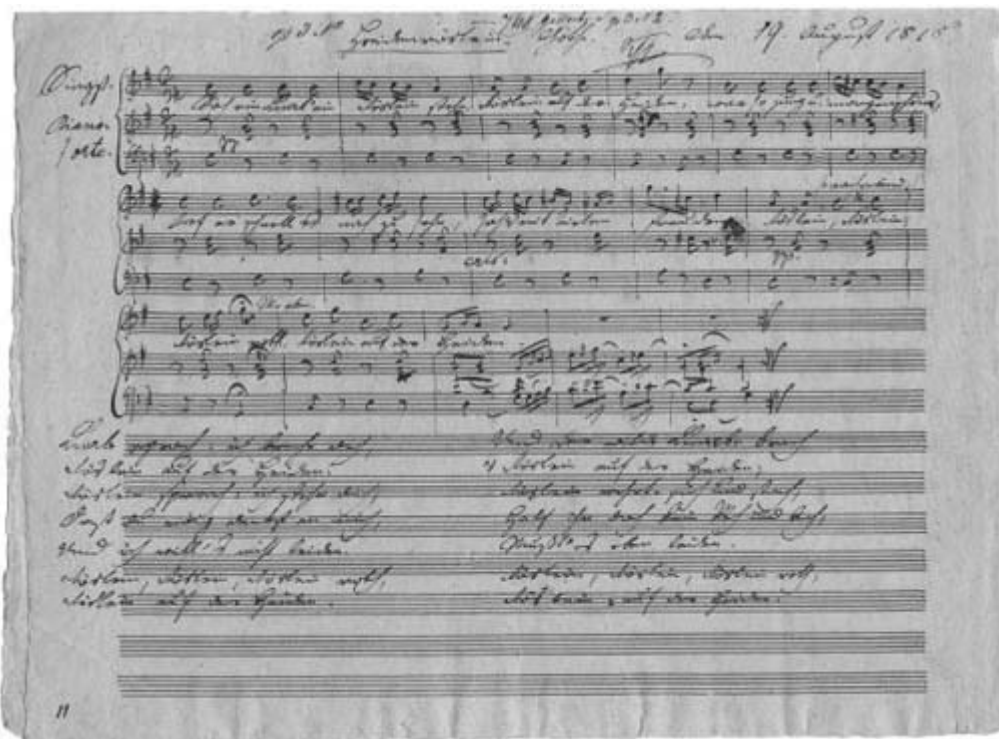 Heidenröslein. Göthe. Den 19. August 1815
Singst.
Sah ein Knab' ein Röslein stehn, Röslein auf der Heiden, war so jung u. morgenschön,
Piano-
forte.
pp
lief er schnell es nah zu sehn, sah's mit vielen Freuden. Röslein, Röslein,
cresc.
pp
Röslein roth, Röslein auf der Heiden.
Knabe sprach: ich breche dich,
Röslein auf der Heiden!
Röslein sprach: ich steche dich,
Daß du ewig denkst an mich,
Und ich will's nicht leiden.
Röslein, Röslein, Röslein roth,
Röslein auf der Heiden.
Und der wilde Knabe brach
's Röslein auf der Heiden;
Röslein wehrte sich und stach,
Half ihr doch kein Weh und Ach,
Mußt' es eben leiden.
Röslein, Röslein, Röslein roth,
Röslein auf der Heiden.
11